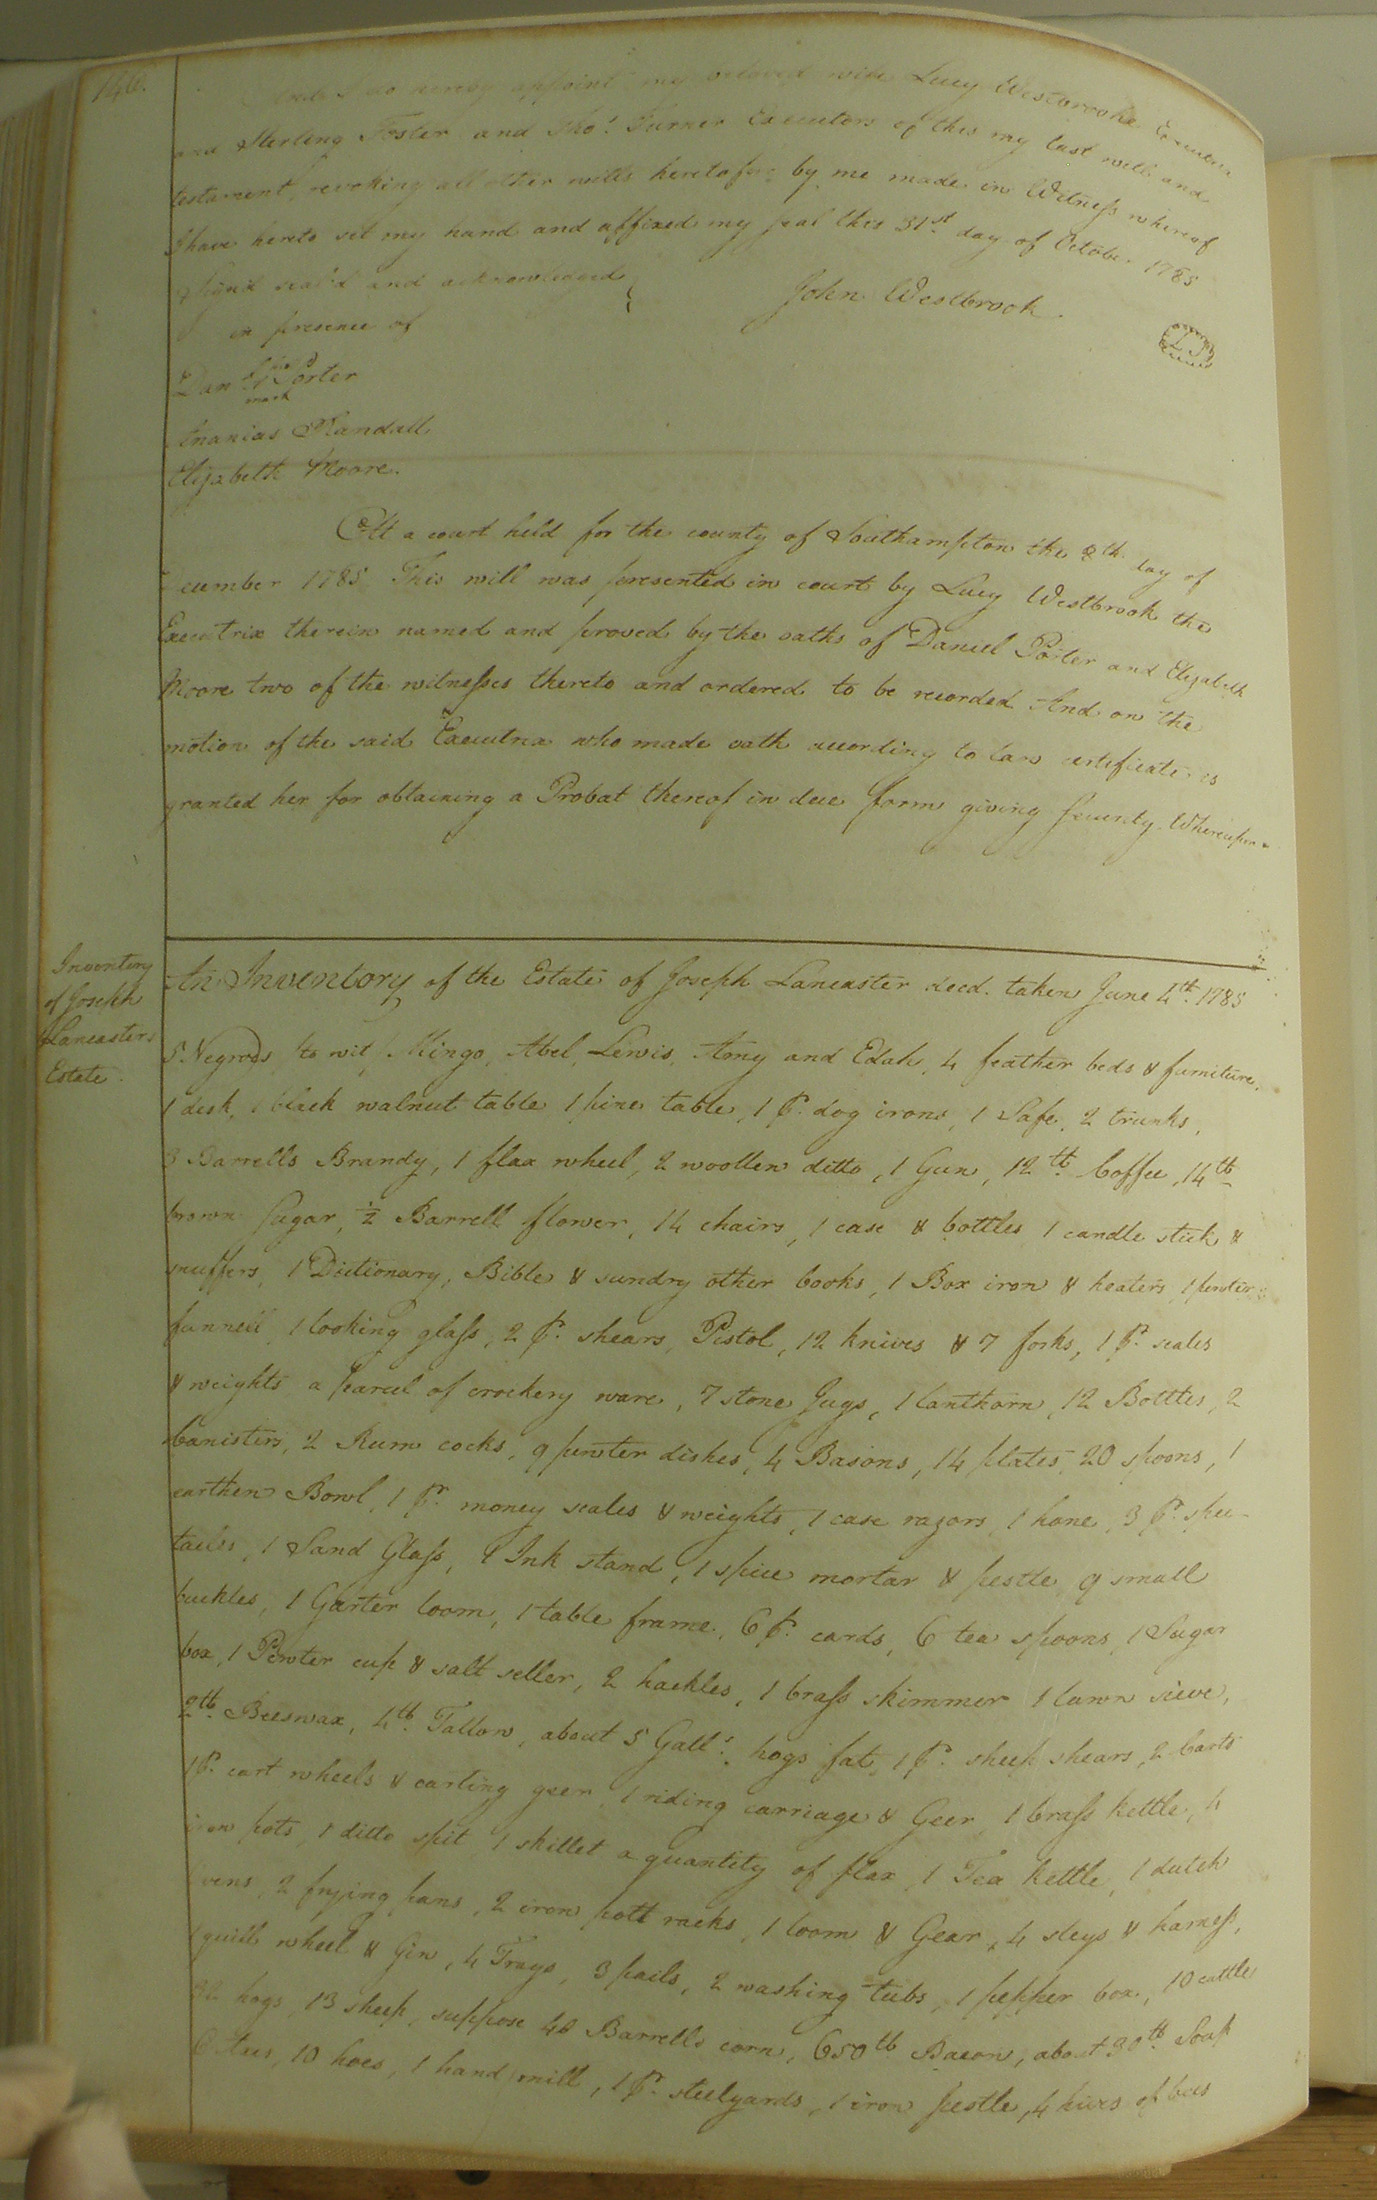 146.
And I do hereby appoint my beloved wife Lucy Westbrooke
and Sterling Foster and Thos. Turner Executors of this my last will and
testament, revoking all other wills heretofore by me made in Witness whereof
I have hereto set my hand and affixed my seal this 31st. day of October 1785
Signed seal'd and acknowledged
in presence of
John Westbrook.
LS
his
Danl. Porter
mark
Ananias Randall
Elizabeth Moore.
At a court held for the county of Southampton the 8th. day of
cember 1785 This will was presented in court by Lucy Westbrook the
Executrix therein named and proved by the oaths of Daniel Porter and Elizabeth
Moore two of the witnesses thereto and ordered to be recorded And on the
motion of the said Executrix who made oath according to law certificate is
granted her for obtaining a Probat thereof in due form giving security. Whereupon
Inventory
of Joseph
Lancasters
Estate.
An Inventory of the Estate of Joseph Lancaster decd. taken June 4th. 1785
5 Negroes to wit Mingo, Abel, Lewis, Amy and Edah, 4 feather beds & furniture,
1 desk, 1 black walnut table 1 pine table, 1 pr. dog irons, 1 Safe, 2 trunks,
3 Barrells Brandy, 1 flax wheel, 2 woollen ditto, 1 Gun, 12 lb. Coffee, 14 lb
brown sugar, ½ Barrell flower, 14 chairs, 1 case & bottles 1 candle stick &
snuffers, 1 Dictionary, Bible & sundry other books, 1 Box iron & heaters, 1 pewter
funnell, 1 looking glass, 2 pr. shears, Pistol, 12 knives & 7 forks, 1 pr. scales
& weights a parcel of crockery ware, 7 stone Jugs, 1 lanthorn, 12 Bottles, 2
Canisters, 2 Rum cocks, 9 pewter dishes, 4 Basons, 14 plates, 20 spoons, 1
earthen Bowl, 1 pr. money scales & weights, 1 case razors, 1 hone, 3 pr. spec-
tacles, 1 Sand Glass, 1 Ink stand, 1 spice mortar & pestle, 9 small
buckles, 1 Garter loom, 1 table frame, 6 pr. cards, 6 tea spoons, 1 Sugar
box, 1 Pewter cup & salt seller, 2 hackles, 1 brass skimmer 1 lawn sieve,
2 lb. Beeswax, 4 lb. Tallow, about 5 Galls. hogs fat, 1 pr. sheep shears, 2 Carts
1 pr. cart wheels & carting geer, 1 riding carriage & Geer, 1 brass kettle, 4
iron pots, 1 ditto spit, 1 skillet a quantity of flax 1 Tea kettle, 1 dutch
ovens, 2 frying pans, 2 iron pott racks, 1 loom & Gear, 4 sleys & harness,
1 quill wheel & Gin, 4 Trays, 3 pails, 2 washing tubs, 1 pepper box, 10 cattle
32 hogs, 13 sheep, suppose 40 Barrells corn, 650 lb. Bacon, about 30 lb. Soap
6 Axes, 10 hoes, 1 hand mill, 1 pr. steelyards, 1 iron pestle, 4 hives of bees